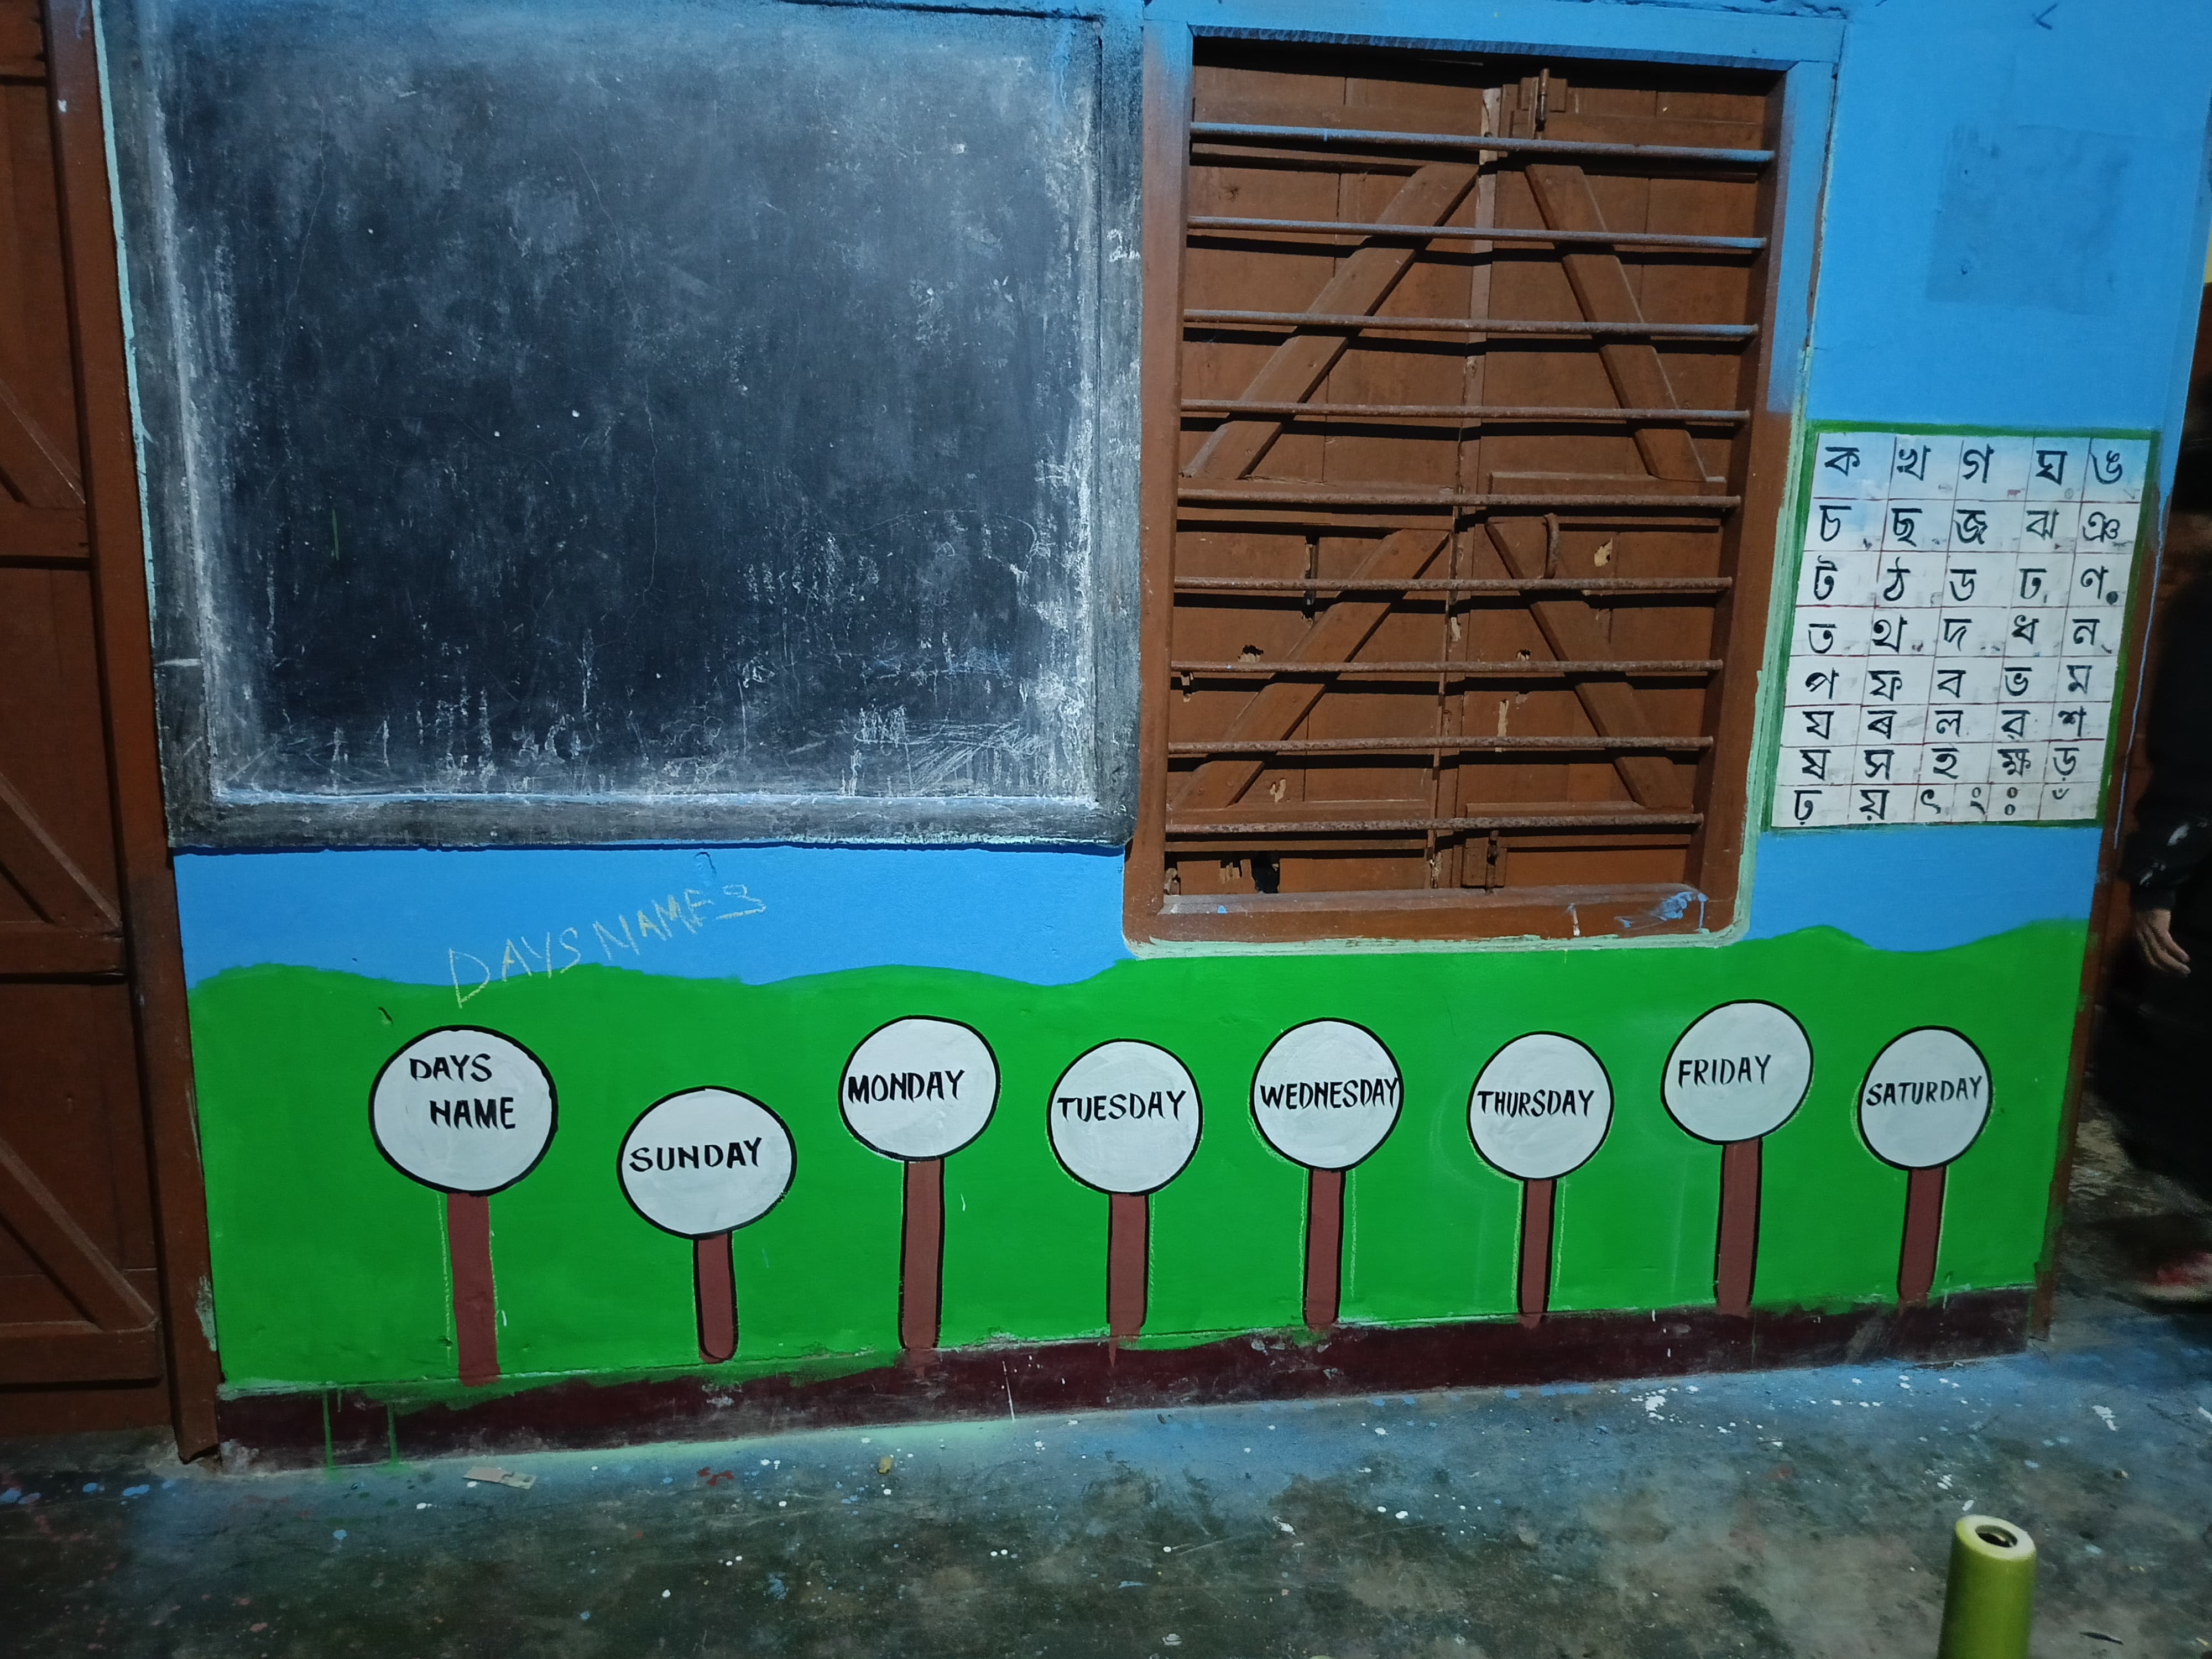 ক খ গ ঘ ঙ
চ ছ জ ঝ ঞ
ট ঠ ড ঢ ণ
ত থ দ ধ ন
প ফ ব ভ ম
য ৰ ল ৱ শ
ষ স হ ক্ষ ড়
ঢ় য় ৎ ং ঃ ঁ
DAYS NAMES
DAYS
NAME
SUNDAY
MONDAY
TUESDAY
WEDNESDAY
THURSDAY
FRIDAY
SATURDAY